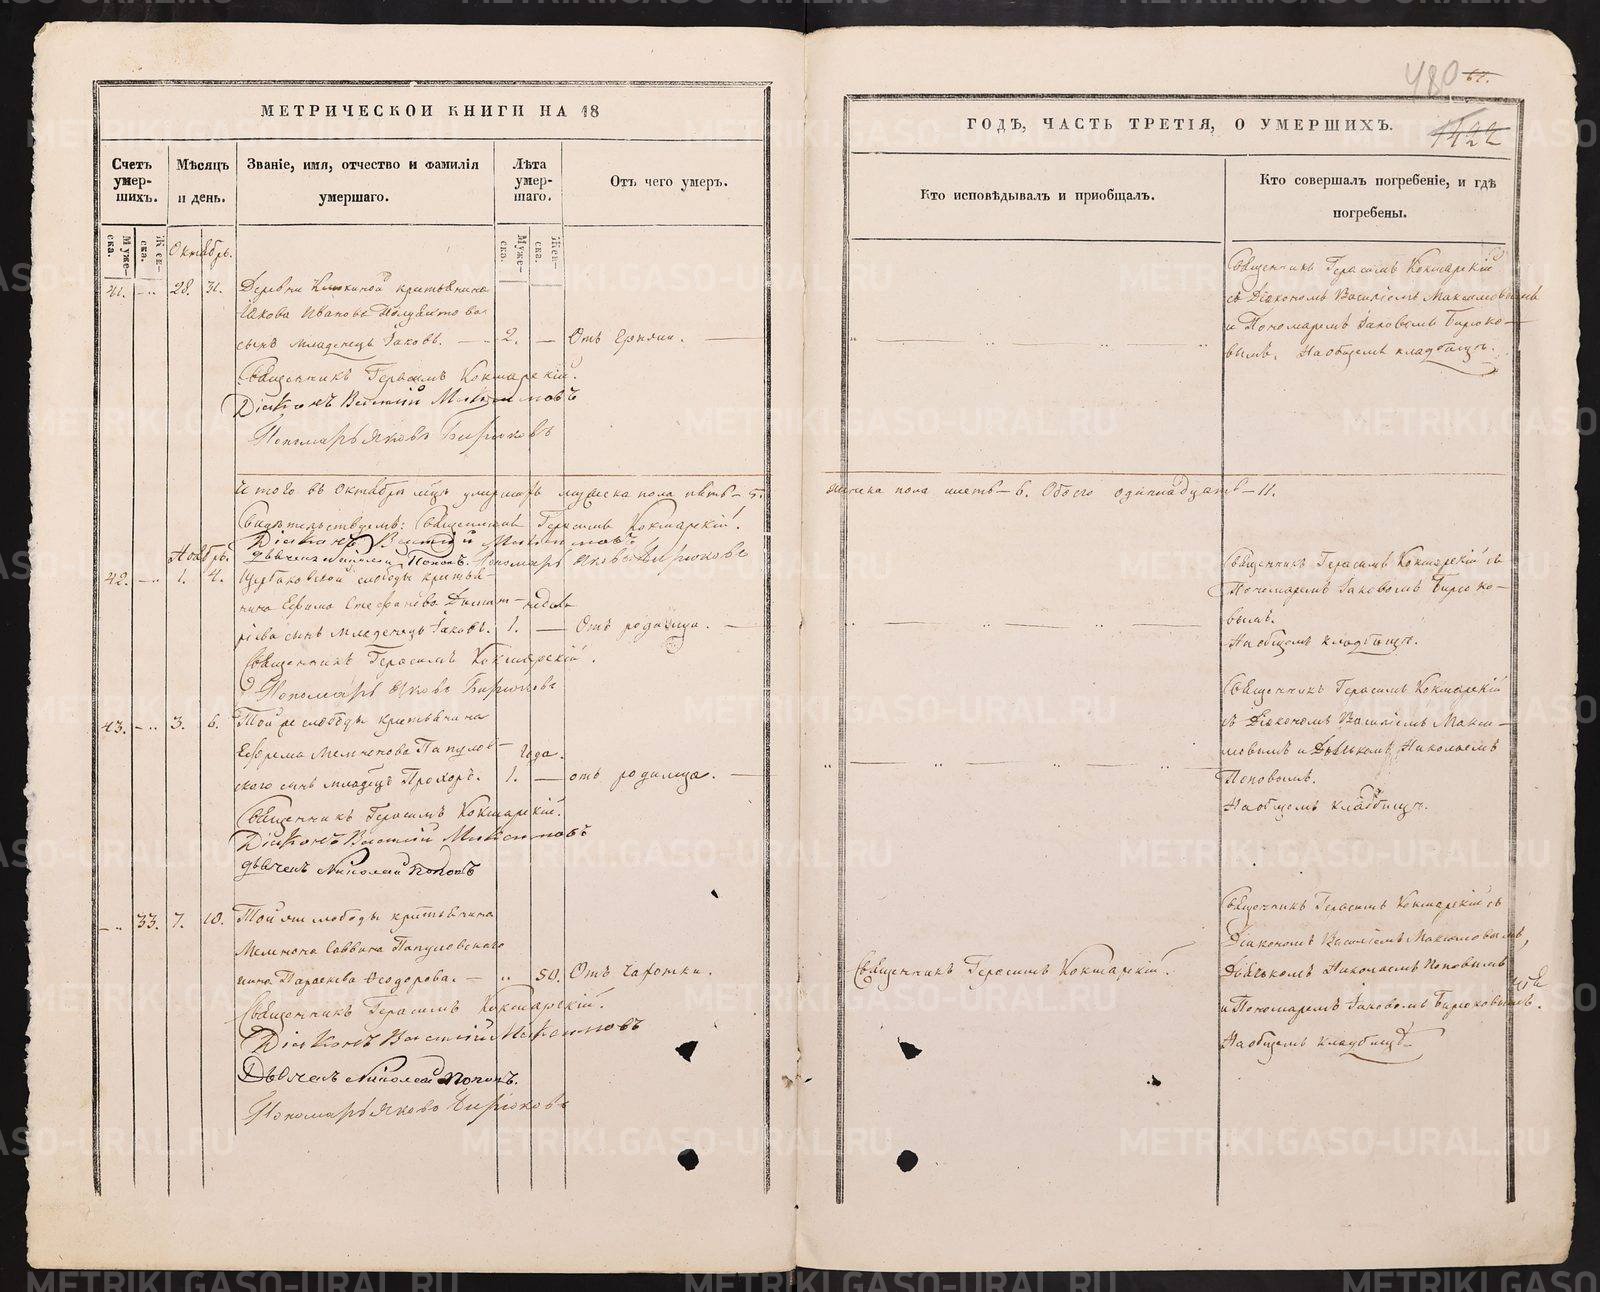 МЕТРИЧЕСКОИ КНИГИ НА 18
Счетъ умер- шихъ.
Мѣсяцъ и день.
Званіе, имя, отчество и фамилія умершаго.
Лѣта умер- шаго.
Отъ чего умеръ.
Муже- ска.
Жен- ска.
Муже- ска.
Жен- ска.
Октябрь.
41. 28. 31. Деревни крестьянина
Іакова Иванова
сынъ младенецъ Іаковъ. 2. Отъ
Священникъ Герасимъ Кокшарскій.
Діаконъ Василій Максимовъ
Пономарь Яковъ Бирюковъ
Итого въ Октябрѣ мцѣ умершихъ мужеска пола пять - 5.
Свидѣтельствуемъ: Священникъ Герасимъ Кокшарскій.
Діаконъ Василій Максимовъ
Дьячекъ Николай Поповъ. Пономарь Яковъ Бирюковъ
Ноябрь.
42. 1. 4. слободы крестья-
нина Ефима Стефанова
сынъ младенецъ Іаковъ. недѣль 1. Отъ родимца.
Священникъ Герасимъ Кокшарскій.
Пономарь Яковъ Бирюковъ
43. 3. 6. Той же слободы крестьянина
Ефрема Папулов-
скаго сынъ младенецъ Прохоръ. года. 1. отъ родимца.
Священникъ Герасимъ Кокшарскій.
Діаконъ Василій Максимовъ
дьячекъ Николай Поповъ
33. 7. 10. Той же слободы крестьянина
Саввина Папуловскаго
жена Параскева Ѳеодорова. 50. Отъ чахотки.
Священникъ Герасимъ Кокшарскій.
Діаконъ Василій Максимовъ
Дьячекъ Николай Поповъ.
Пономарь Яковъ Бирюковъ
480
1422
ГОДЪ, ЧАСТЬ ТРЕТІЯ, О УМЕРШИХЪ.
Кто исповѣдывалъ и приобщалъ.
Кто совершалъ погребеніе, и гдѣ погребены.
Священникъ Герасимъ Кокшарскій
съ Діакономъ Василіемъ Максимовымъ
и Пономаремъ Іаковомъ Бирюко-
вымъ. На общемъ кладбищѣ.
женска пола шесть - 6. Обоего одиннадцать - 11.
Священникъ Герасимъ Кокшарскій съ
Пономаремъ Іаковомъ Бирюко-
вымъ.
На общемъ кладбищѣ.
Священникъ Герасимъ Кокшарскій
съ Діакономъ Василіемъ Макси-
мовымъ и Дьячкомъ Николаемъ
Поповымъ.
На общемъ кладбищѣ.
Священникъ Герасимъ Кокшарскій.
Священникъ Герасимъ Кокшарскій съ
Діакономъ Василіемъ Максимовымъ,
Дьячкомъ Николаемъ Поповымъ
и Пономаремъ Іаковомъ Бирюковымъ.
На общемъ кладбищѣ.
METRIKI.GASO-URAL.RU